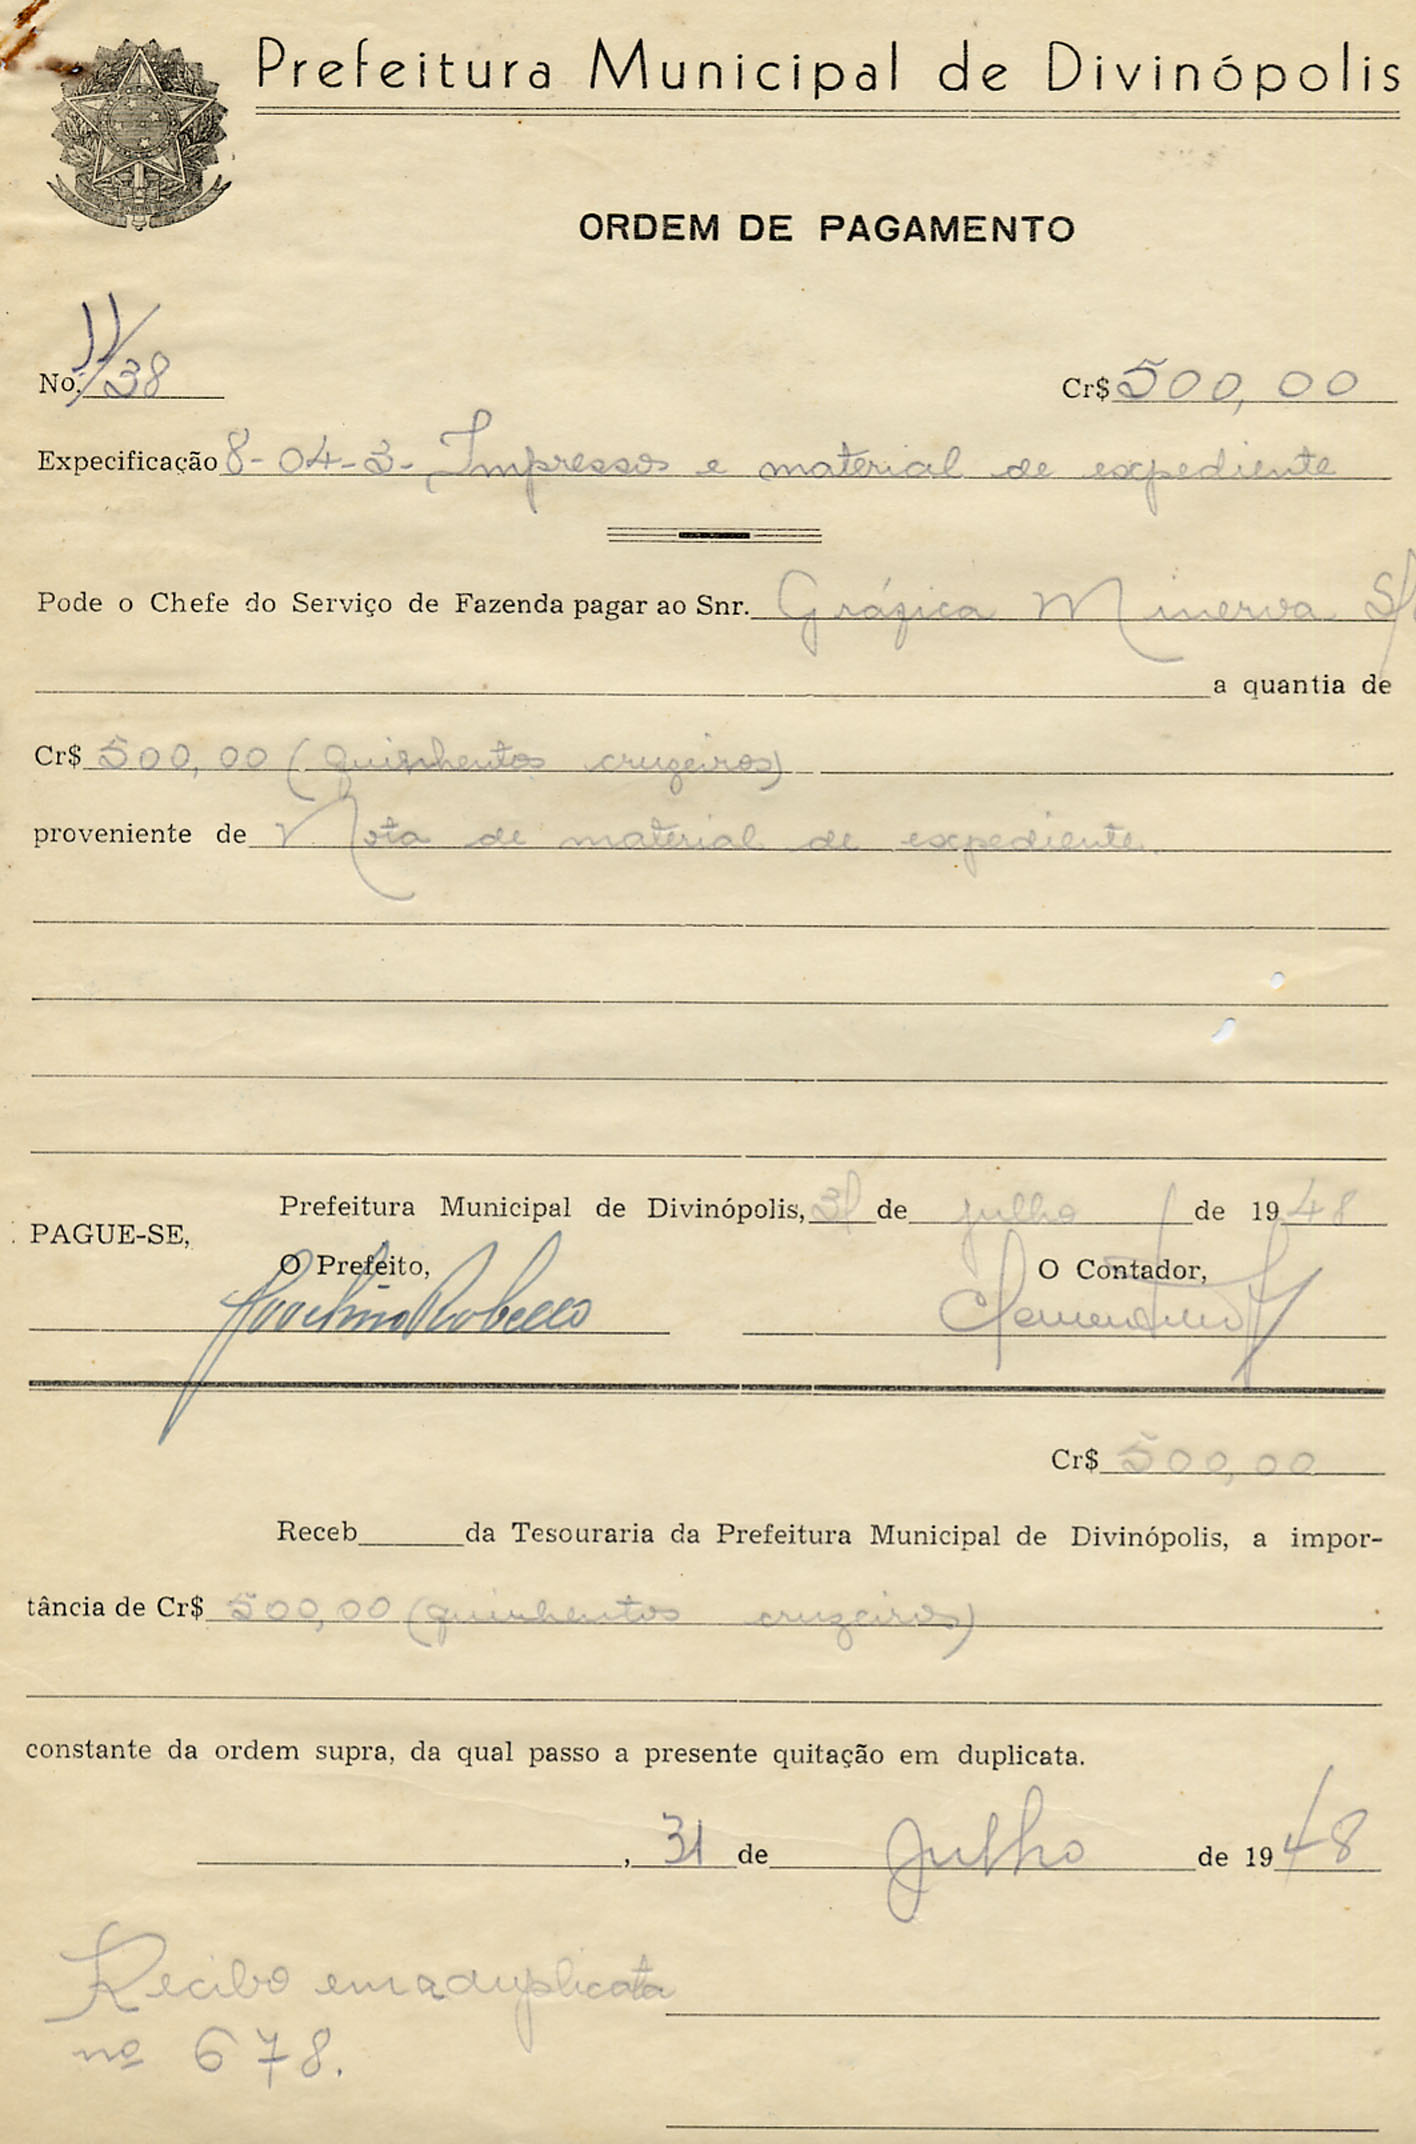 Prefeitura Municipal de Divinópolis
ORDEM DE PAGAMENTO
No. 11/38 Cr$ 500,00
Expecificação 8-04-3- Impressos e material de expediente
Pode o Chefe do Serviço de Fazenda pagar ao Snr. Gráfica Minerva
a quantia de
Cr$ 500,00 (quinhentos cruzeiros)
proveniente de Nota de material de expediente.
Prefeitura Municipal de Divinópolis, 31 de julho de 1948
PAGUE-SE,
O Prefeito, O Contador,
Cr$ 500,00
Receb da Tesouraria da Prefeitura Municipal de Divinópolis, a impor-
tância de Cr$ 500,00 (quinhentos cruzeiros)
constante da ordem supra, da qual passo a presente quitação em duplicata.
, 31 de Julho de 1948
Recibo em a duplicata
nº 678.